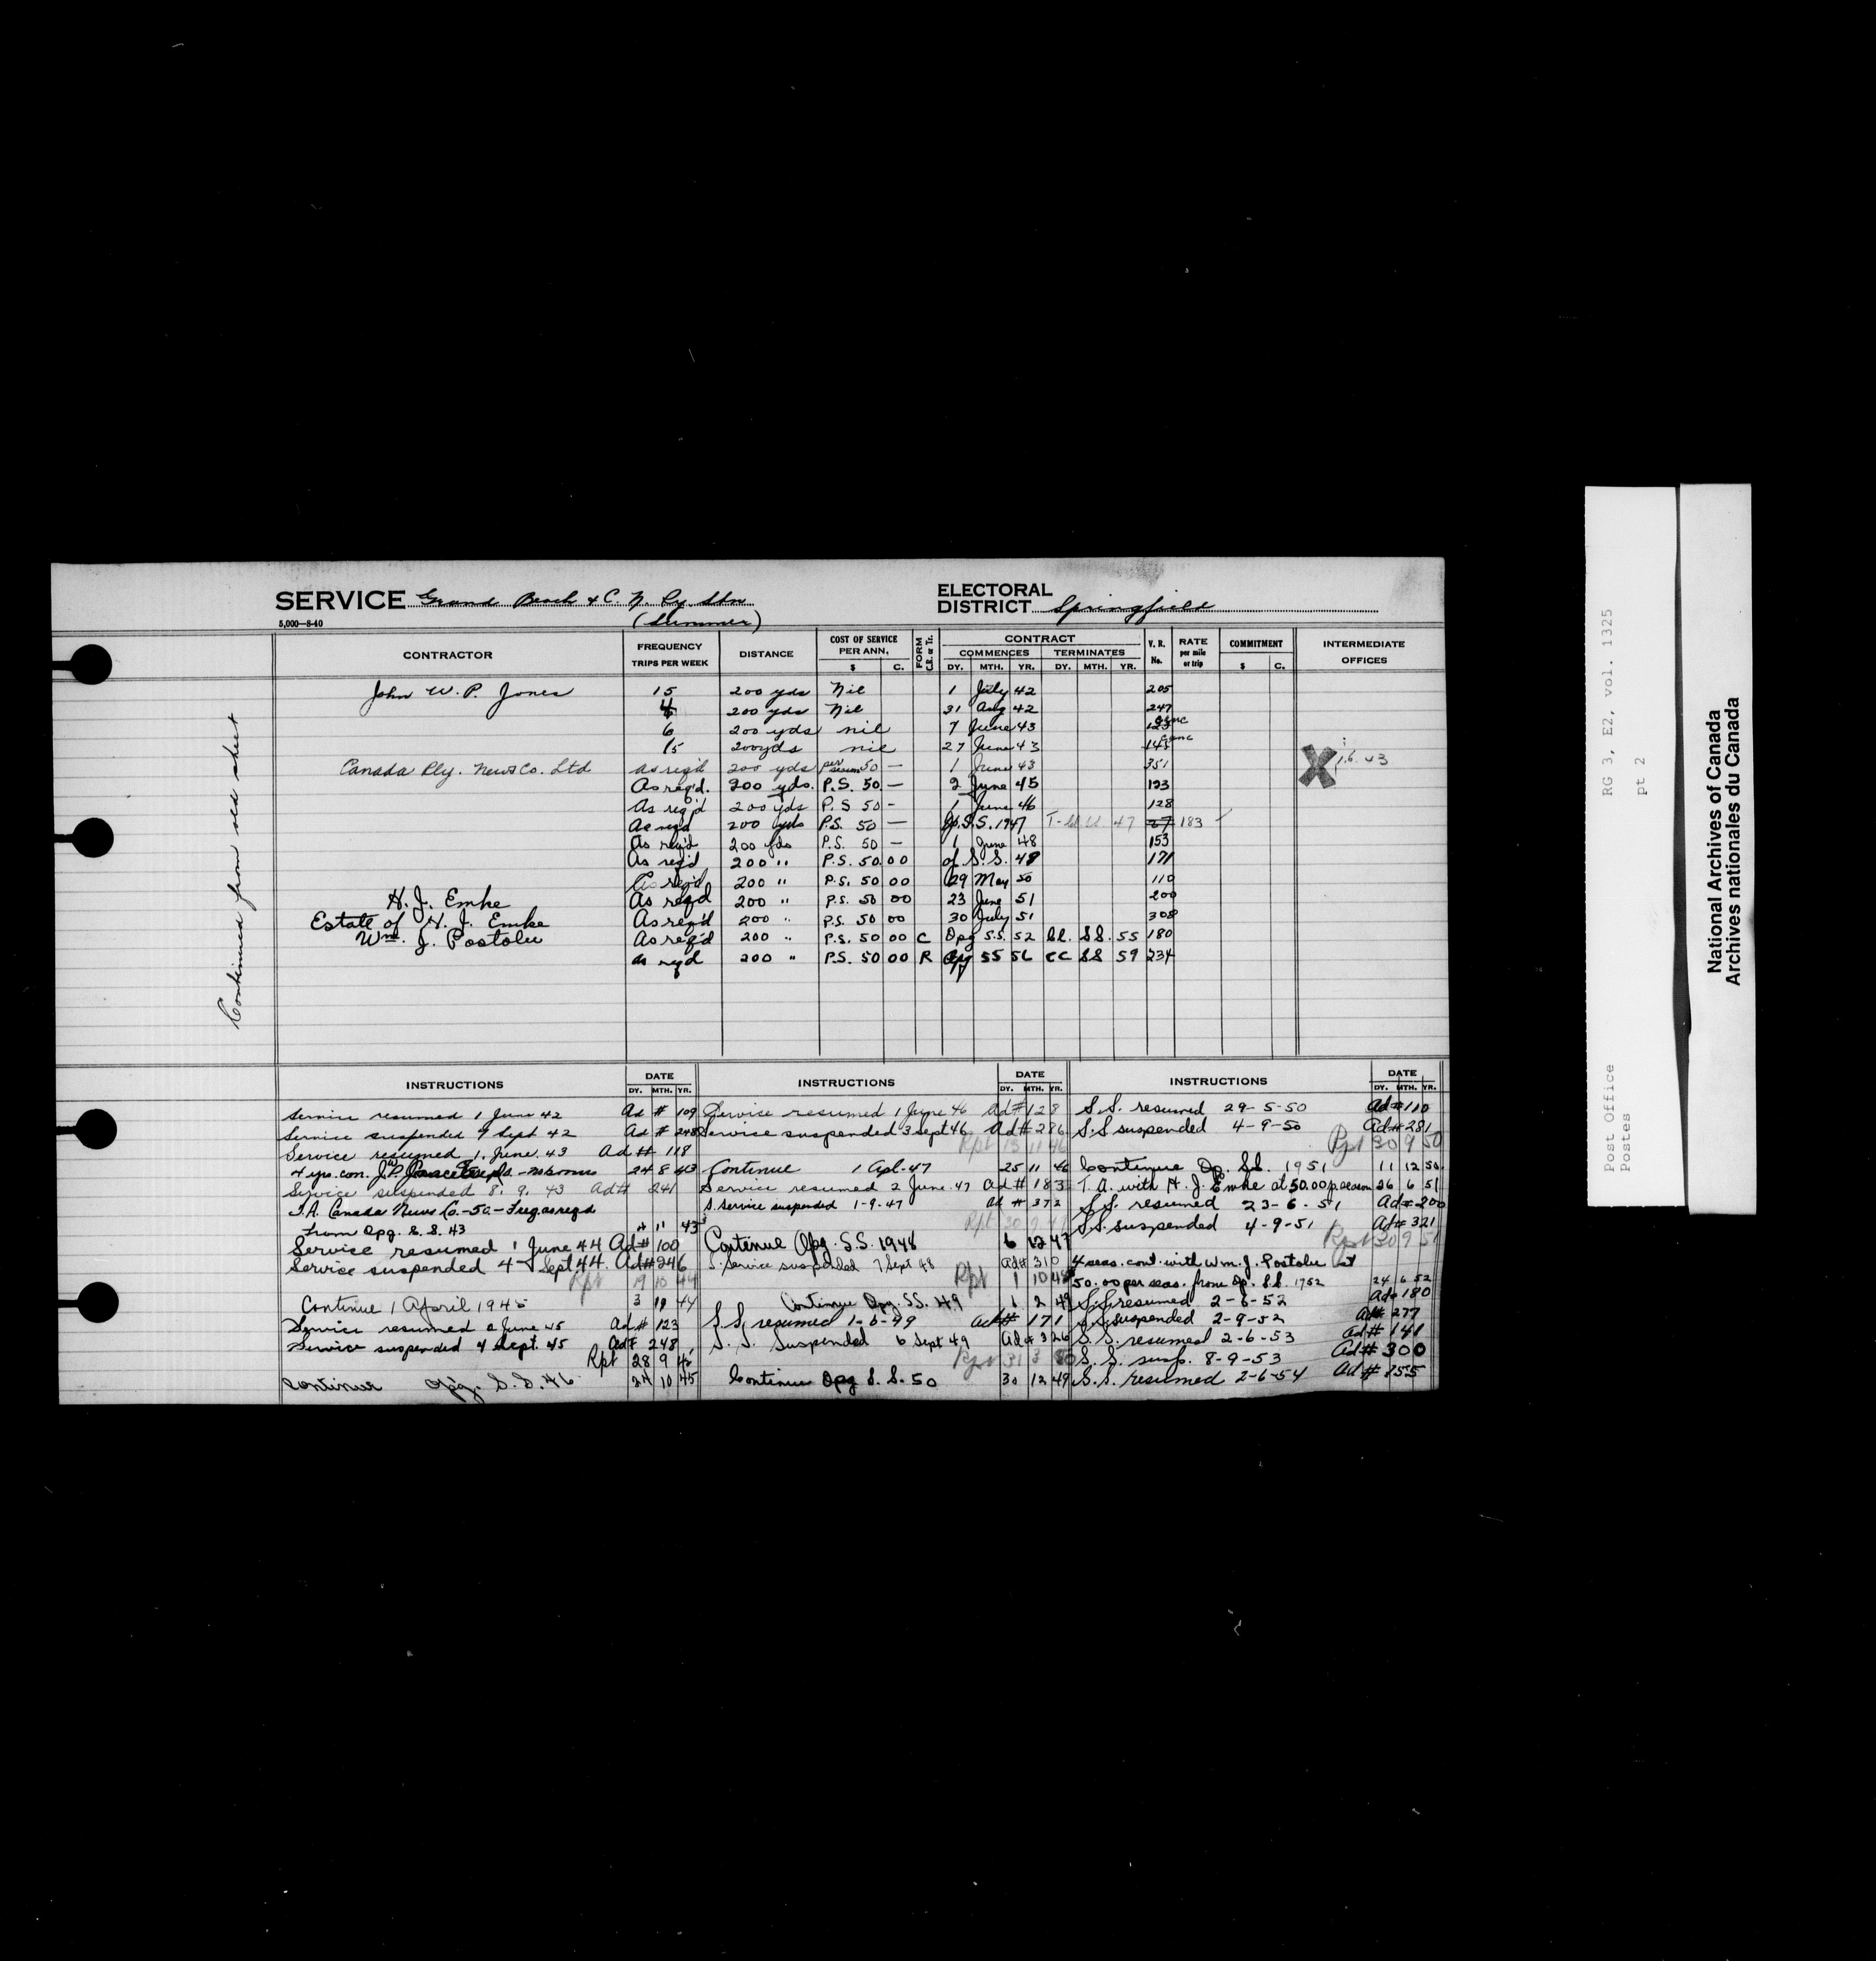 SERVICE Grand Beach & C. N. Ry Stn
(Summer)
5,000—8-40
ELECTORAL
DISTRICT Springfield
CONTRACTOR
FREQUENCY
TRIPS PER WEEK
DISTANCE
COST OF SERVICE
PER ANN.
$ C.
FORM
C.R. or Tr.
CONTRACT
COMMENCES TERMINATES
DY. MTH. YR. DY. MTH. YR.
V. R.
No.
RATE
per mile
or trip
COMMITMENT
$ C.
INTERMEDIATE
OFFICES
Continued from old sheet
John W. P. Jones 15 200 yds Nil 1 July 42 205
4 200 yds Nil 31 Aug 42 247
6 200 yds nil 7 June 43
15 200 yds nil 27 June 43 145
Canada Rly. News Co. Ltd as reqd 200 yds per 50 — 1 June 43 351
As req'd. 200 yds. P.S. 50 — 2 June 45 123
As req'd 200 yds P.S 50 - 1 June 46 128
As reqd 200 yds P.S. 50 — S.S. 1947 47 183
As req'd 200 yds P.S. 50 — 1 June 48 153
As req'd 200 " P.S. 50 00 S.S. 49 171
As req'd 200 " P.S. 50 00 29 May 50 110
H. J. Emke As reqd 200 " P.S. 50 00 23 June 51 200
Estate of H. J. Emke As req'd 200 " P.S. 50 00 30 July 51 308
Wm. J. Postolu As req'd 200 " P.S. 50 00 C Opg S.S. 52 Cl. S.S. 55 180
as reqd 200 " P.S. 50 00 R Opg 56 SS 59 234
INSTRUCTIONS
DATE
DY. MTH. YR.
Service resumed 1 June 42 Ad # 109
Service suspended 9 Sept 42 Ad # 248
Service resumed 1. June. 43 Ad # 118
4 yrs. con. 24 8 43
Service suspended 8. 9. 43 Ad # 241
T.A. Canada News Co. - 50 - Freq. as reqd
From Opg. S. S. 43 11 43
Service resumed 1 June 44 Ad # 100
Service suspended 4 Sept 44. Ad# 246
Rpt 19 10 44
Continue 1 April 1945 3 11 44
Service resumed 2 June 45 Ad # 123
Service suspended 4 Sept. 45 Ad # 248
Rpt 28 9 45
Continue Opg. S.S. 46 24 10 45
INSTRUCTIONS
DATE
DY. MTH. YR.
Service resumed 1 June 46 Ad # 128
Service suspended 3 Sept 46 Ad # 286
Rpt 13 11 46
Continue 1 Apl. 47 25 11 46
Service resumed 2 June. 47 Ad # 183
S. Service suspended 1-9-47 Ad # 372
Rpt 30 9 47
Continue Opg. S.S. 1948 6 12 47
S. Service suspended 7 Sept 48 Ad# 310
Rpt 1 10 48
Continue Opg. SS. 49 1 2 49
S.S. resumed 1-6-49 Ad# 171
S. S. Suspended 6 Sept 49 Ad # 326
Rpt 31 3 50
Continue Opg S. S. 50 30 12 49
INSTRUCTIONS
DATE
DY. MTH. YR.
S.S. resumed 29-5-50 Ad# 110
S.S suspended 4-9-50 Ad# 281
Rpt 30 9 50
Continue Op. S.S. 1951 11 12 50
T. A. with H. J. Emke at 50.00 p. season 26 6 51
S.S. resumed 23-6-51 Ad# 200
S.S. suspended 4-9-51 Ad# 321
Rpt 30 9 51
4 seas. cont. with Wm. J. Postolu at
50.00 per seas. from Op. S.S. 1952 24 6 52
S.S. resumed 2-6-52 Ad# 180
S.S. suspended 2-9-52 Ad# 277
S. S. resumed 2-6-53 Ad# 141
S. S. susp. 8-9-53 Ad# 300
S.S. resumed 2-6-54 Ad# 155
RG 3, E2, vol. 1325
pt 2
Post Office
Postes
National Archives of Canada
Archives nationales du Canada